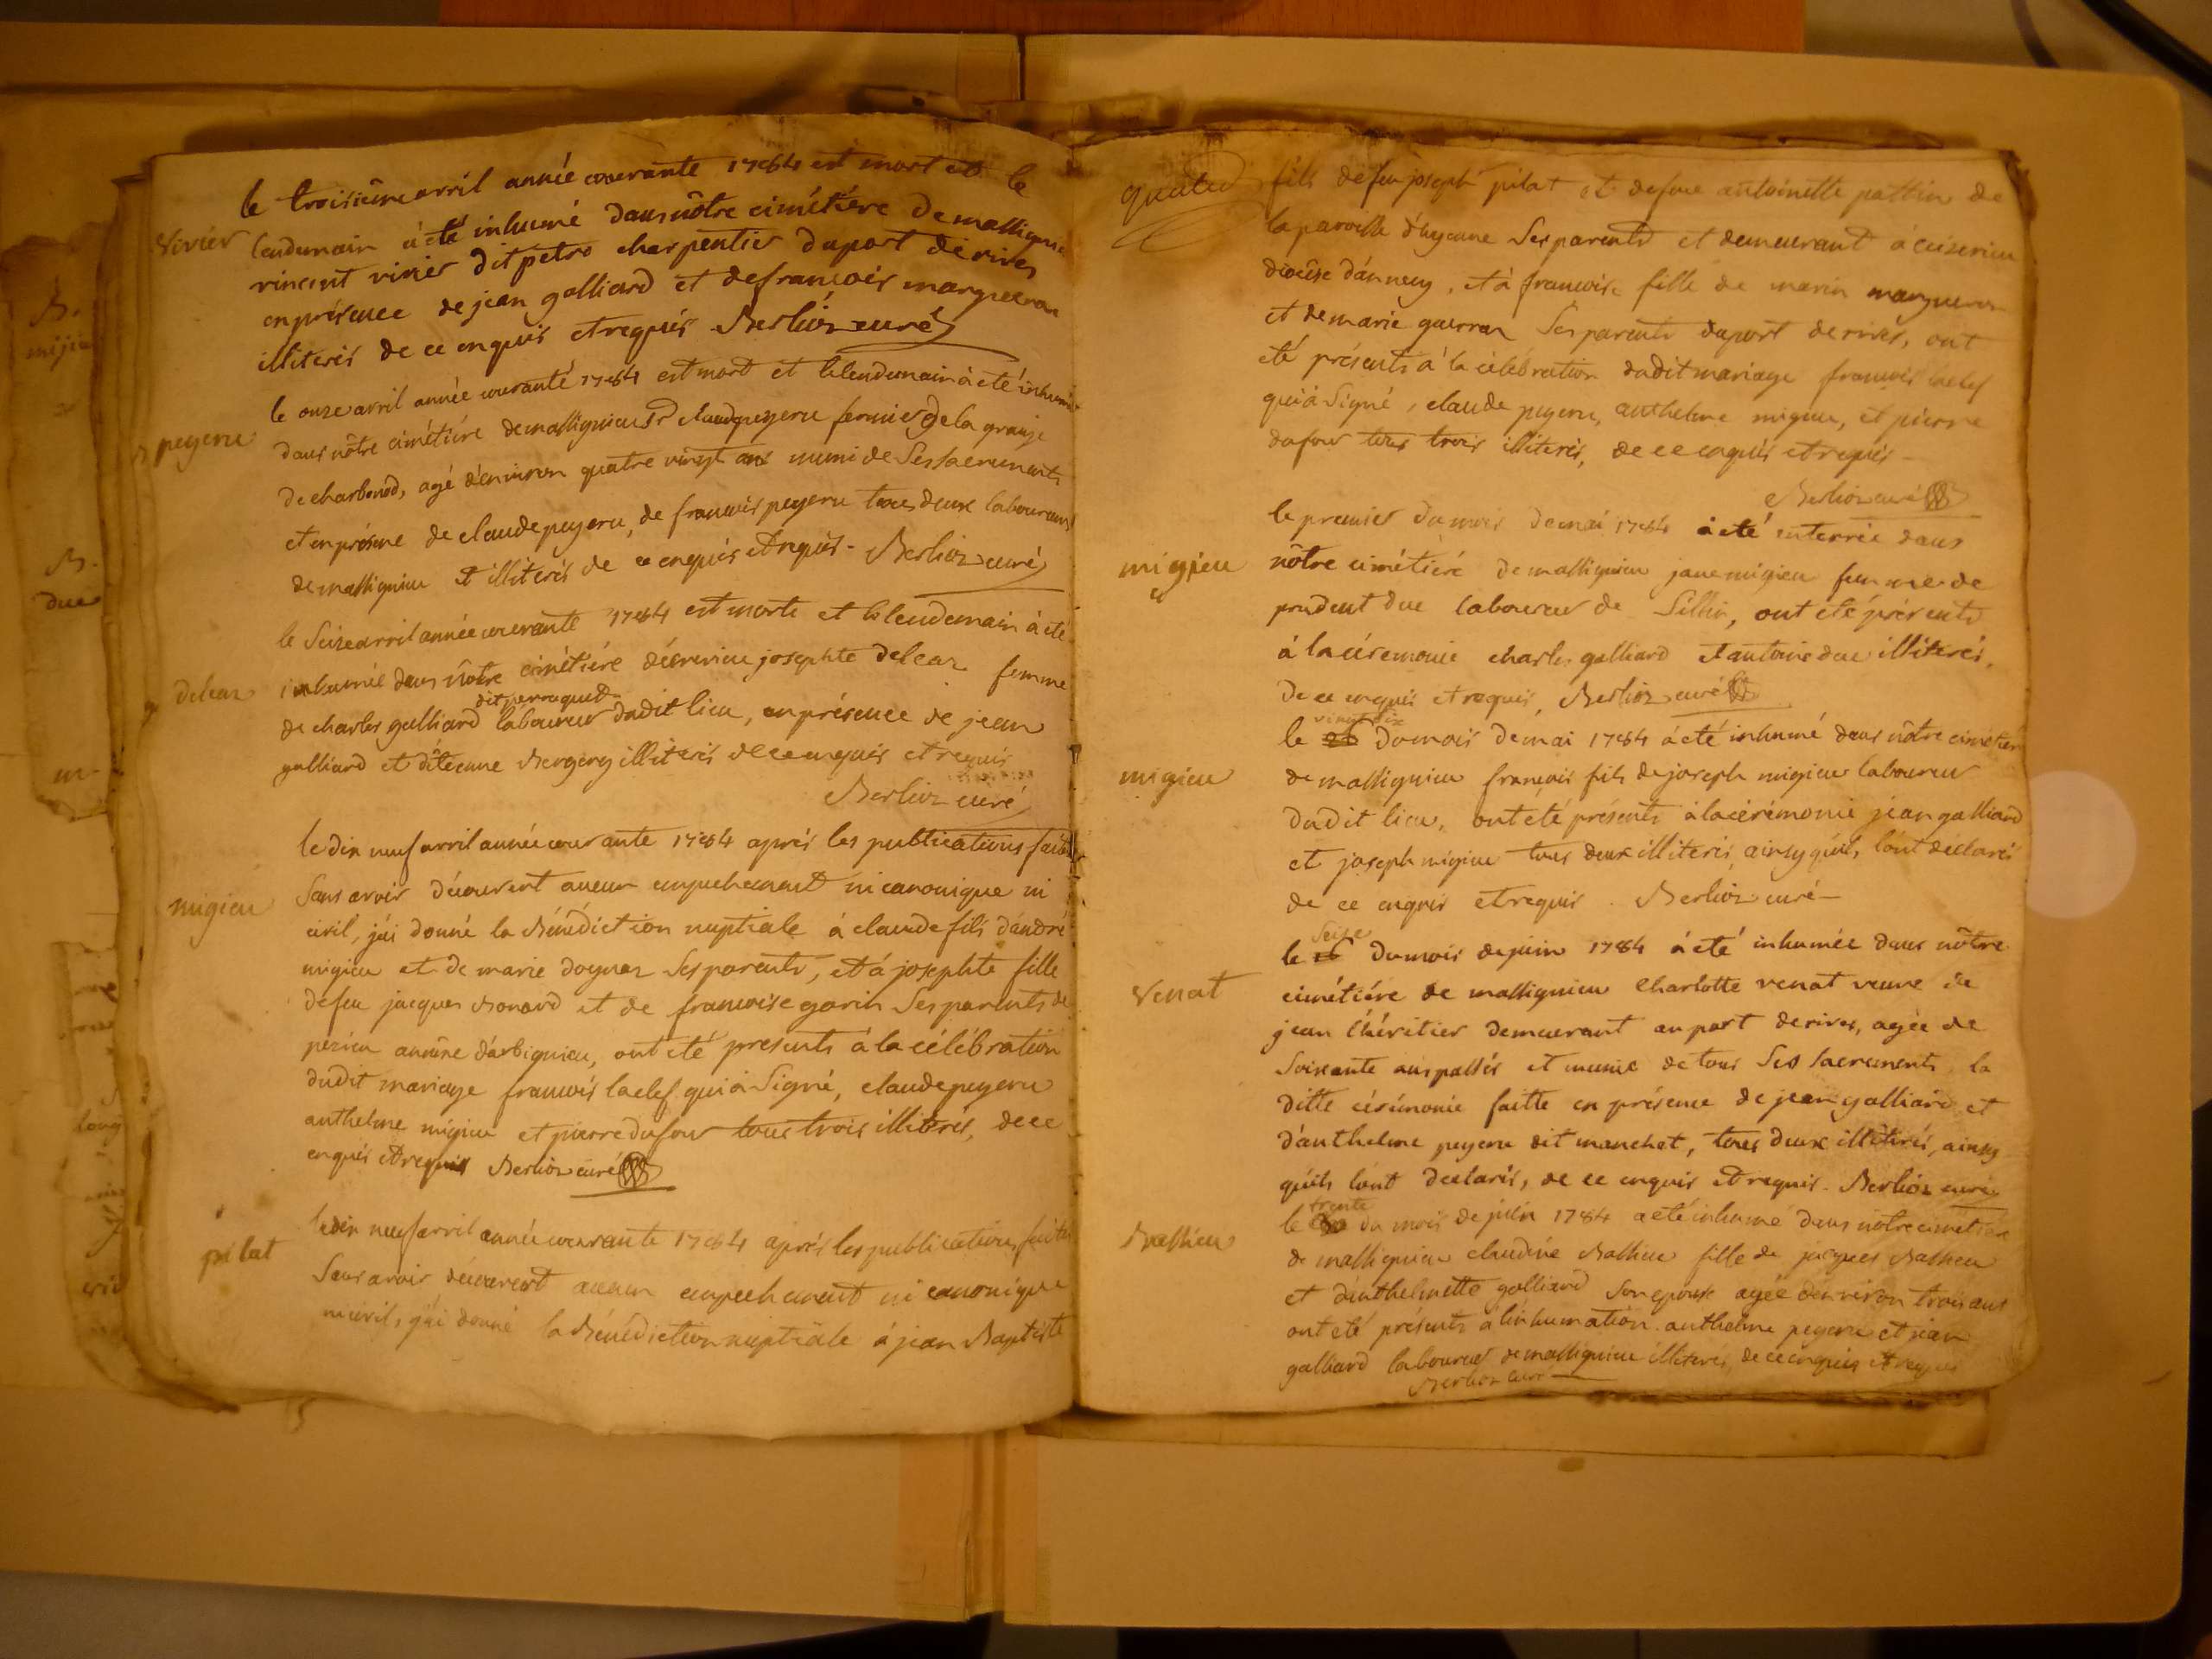 le troisiéme avril année courante 1784 est mort et le
vivier
lendemain à été inhumé dans nôtre cimétiére de massignieu
vincent vivier dit petro charpentier du port de rives
en présence de jean galliard et de francois margueron
illiterés de ce enquis et requis Berlioz curé
le onze avril année courante 1784 est mort et le lendemain à été inhumé
peyeru
dans nôtre cimétiére de massignieu Sr claude peyeru fermier de la grange
de charbonod, agé d'environ quatre vingt ans muni de Ses Sacrements
et en présence de claude peyeru, de francois peyeru tous deux laboureurs
de massignieu et illiterés de ce enquis et requis - Berlioz curé
le Seize avril année courante 1784 est morte et le lendemain à été
deleaz
inhumée dans nôtre cimétiére josephte deleaz femme
dit perruquet
de charles galliard laboureur dudit lieu, en présence de jean
galliard et d'étienne Bergery illiterés de ce enquis et requis
Berlioz curé
le dix neuf avril année courante 1784 aprés les publications faites
migieu
Sans avoir découvert aucun empechement ni canonique ni
civil, j'ai donné la Bénédiction nuptiale à claude fils d'andré
migieu et de marie Ses parents, et à josephte fille
de feu jacques Bonard et de francoise gorin Ses parents de
annéxe d'arbignieu, ont été presents à la célébration
dudit mariage francois laclef qui à Signé, claude peyeru
anthelme migieu et pierre dufour tous trois illiterés, de ce
enquis et requis Berlioz curé
le dix neuf avril année courante 1784 aprés les publications faites
pilat
Sans avoir découvert aucun empechement ni canonique
ni civil, j'ai donné la Bénédiction nuptiale à jean Baptiste
fils de feu joseph pilat et de feue antoinette pattin de
la paroisse Ses parents et demeurant à ceizerieu
diocése d'annecy, et à francoise fille de marin margueron
et de marie guerraz Ses parents du port de rives, ont
été présents à la célébration dudit mariage francois laclef
qui à Signé, claude peyeru, anthelme migieu, et pierre
dufour tous trois illiterés, de ce enquis et requis -
Berlioz curé
le premier du mois de mai 1784 à été enterrée dans
migieu
nôtre cimétiére de massignieu jane migieu femme de
prudent due laboureur de Sillin, ont été présents
à la céremonie charles galliard et antoine due illiterés,
de ce enquis et requis, Berlioz curé
vingt six
le 26 du mois de mai 1784 à été inhumé dans nôtre cimétiére
migieu
de massignieu francois fils de joseph migieu laboureur
dudit lieu, ont été présents à la cérémonie jean galliard
et joseph migieu tous deux illiterés, ainsy qu'ils l'ont déclaré
de ce enquis et requis. Berlioz curé -
Seize
le 16 du mois de juin 1784 à été inhumée dans nôtre
venat
cimétiére de massignieu Charlotte venat veuve de
jean l'héritier demeurant au port de rives, agée de
Soixante ans passés et munie de tous Ses Sacrements, la
ditte cérémonie faitte en présence de jean galliard et
d'anthelme peyeru dit manchet, tous deux illiterés, ainsy
qu'ils l'ont declarés, de ce enquis et requis. Berlioz curé
trente
le du mois de juin 1784 a été inhumé dans nôtre cimétiére
Bathieu
de massignieu claudine Bathieu fille de jacques Bathieu
et d'anthelmette galliard Son epouse agée d'environ trois ans
ont été présents à l'inhumation anthelme peyeru et jean
galliard laboureurs de massignieu illiterés, de ce enquis et requis
Berlioz curé